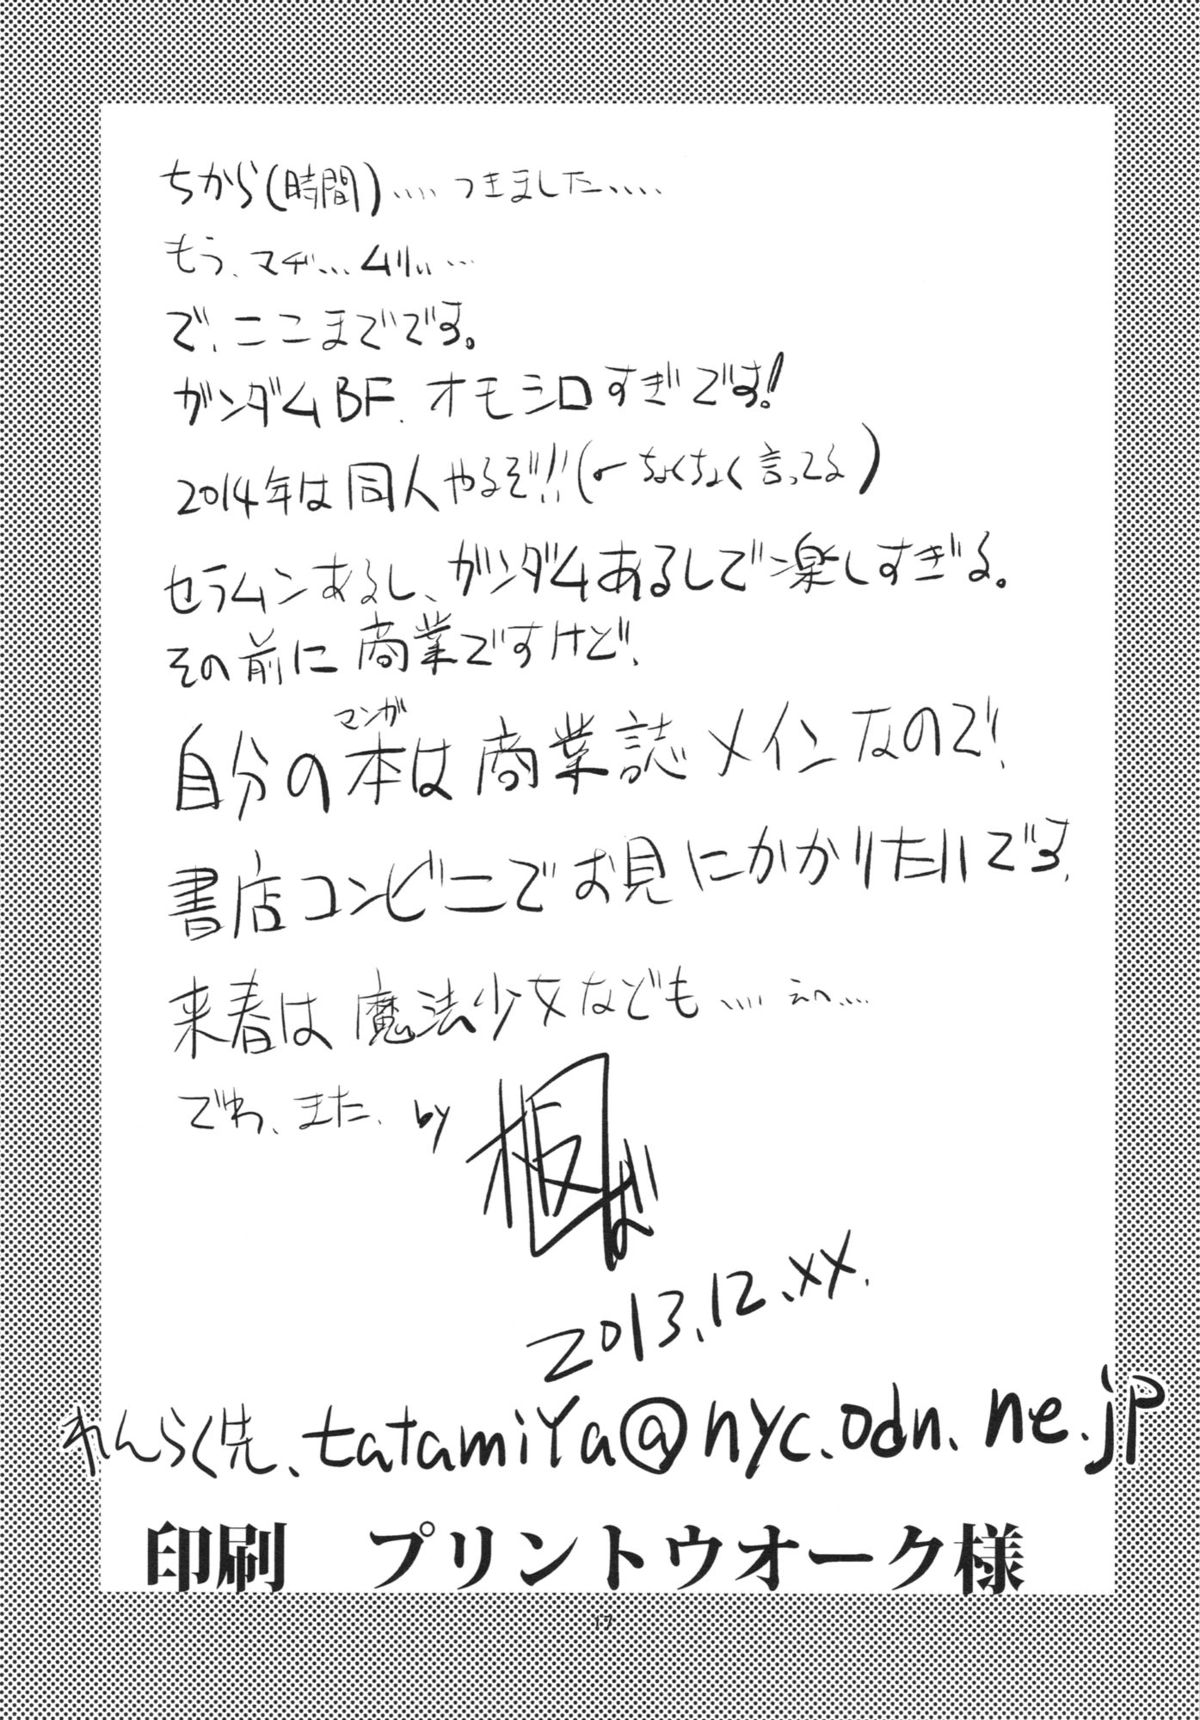 ちから(時間)....つきました....
もう、マヂ...ムリ.....
で、ここまでです。
ガンダムBF.オモシロすぎです!
2014年は同人やるぞ!!(←ちょくちょく言ってる)
セラムンあるし、ガンダムあるしで楽しすぎる。
その前に商業ですけど!
マンガ
自分の本は商業誌メインなので!
書店コンビニでお見にかかりたいです.
来春は魔法少女なども....えへ....
でわ、また. by
2013.12.XX.
れんらく先、tatamiYa@nyc.odn.ne.jp
印刷　プリントウオーク様
17